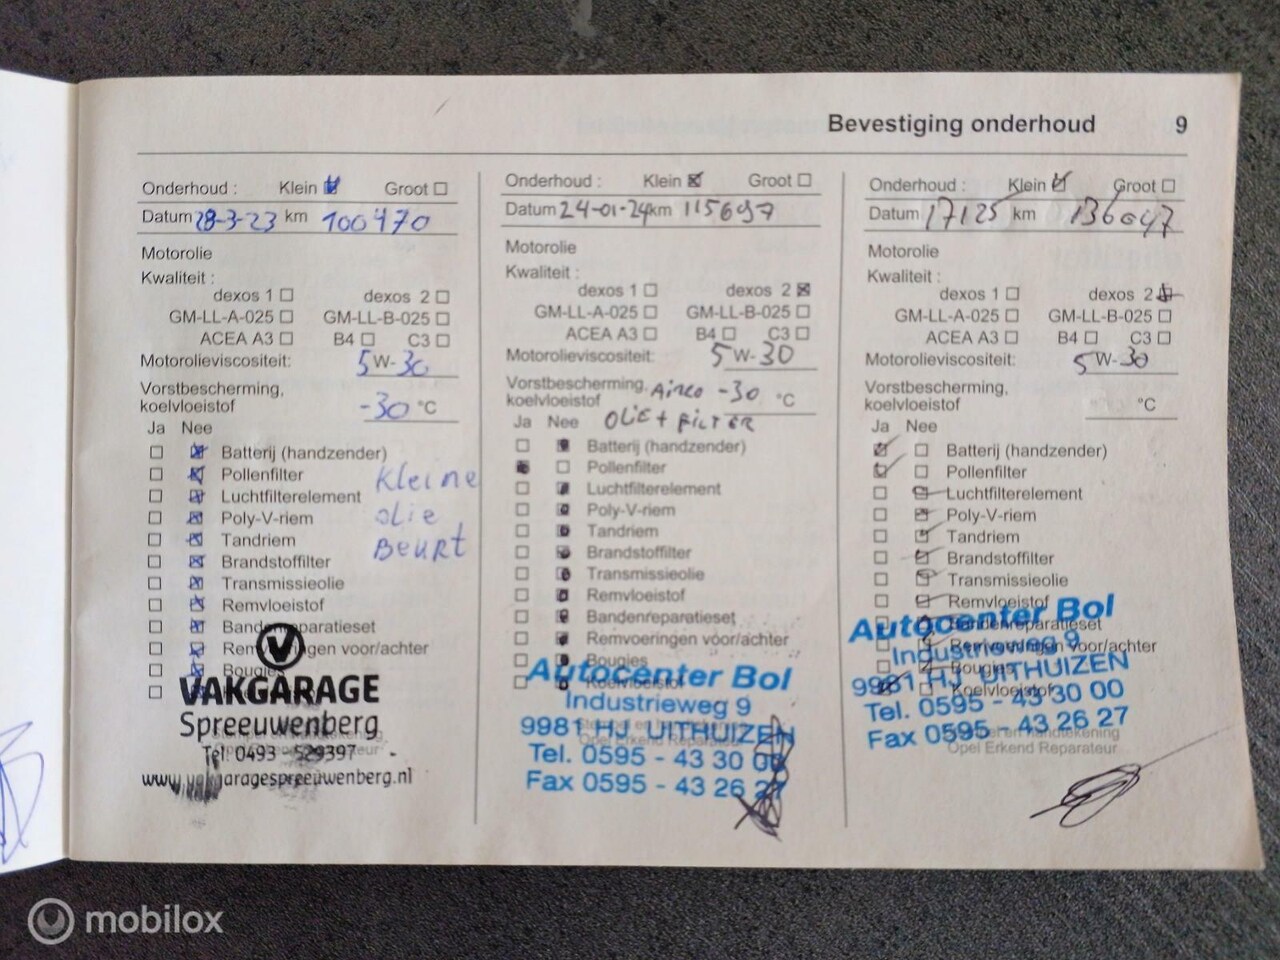 Bevestiging onderhoud 9
Onderhoud : Klein Groot
Datum 28-3-23 km 100470
Motorolie
Kwaliteit :
dexos 1 dexos 2
GM-LL-A-025 GM-LL-B-025
ACEA A3 B4 C3
Motorolieviscositeit: 5 W-30
Vorstbescherming,
koelvloeistof -30 °C
Ja Nee
Batterij (handzender)
Pollenfilter
Luchtfilterelement
Poly-V-riem
Tandriem
Brandstoffilter
Transmissieolie
Remvloeistof
Bandenreparatieset
Remvoeringen voor/achter
Bougies
Kleine
olie
Beurt
VAKGARAGE
Spreeuwenberg
Tel. 0493 - 529397
www.vakgaragespreeuwenberg.nl
Onderhoud : Klein Groot
Datum 24-01-24 km 115697
Motorolie
Kwaliteit :
dexos 1 dexos 2
GM-LL-A-025 GM-LL-B-025
ACEA A3 B4 C3
Motorolieviscositeit: 5 W-30
Vorstbescherming, Airco -30 °C
koelvloeistof
OLiE + FiLTER
Ja Nee
Batterij (handzender)
Pollenfilter
Luchtfilterelement
Poly-V-riem
Tandriem
Brandstoffilter
Transmissieolie
Remvloeistof
Bandenreparatieset
Remvoeringen voor/achter
Bougies
Koelvloeistof
Autocenter Bol
Industrieweg 9
9981 HJ UITHUIZEN
Tel. 0595 - 43 30 00
Fax 0595 - 43 26 27
Opel Erkend Reparateur
Onderhoud : Klein Groot
Datum 17125 km 136047
Motorolie
Kwaliteit :
dexos 1 dexos 2
GM-LL-A-025 GM-LL-B-025
ACEA A3 B4 C3
Motorolieviscositeit: 5 W-30
Vorstbescherming,
koelvloeistof °C
Ja Nee
Batterij (handzender)
Pollenfilter
Luchtfilterelement
Poly-V-riem
Tandriem
Brandstoffilter
Transmissieolie
Remvloeistof
Bandenreparatieset
Remvoeringen voor/achter
Bougies
Koelvloeistof
Autocenter Bol
Industrieweg 9
9981 HJ UITHUIZEN
Tel. 0595 - 43 30 00
Fax 0595 - 43 26 27
Opel Erkend Reparateur
mobilox